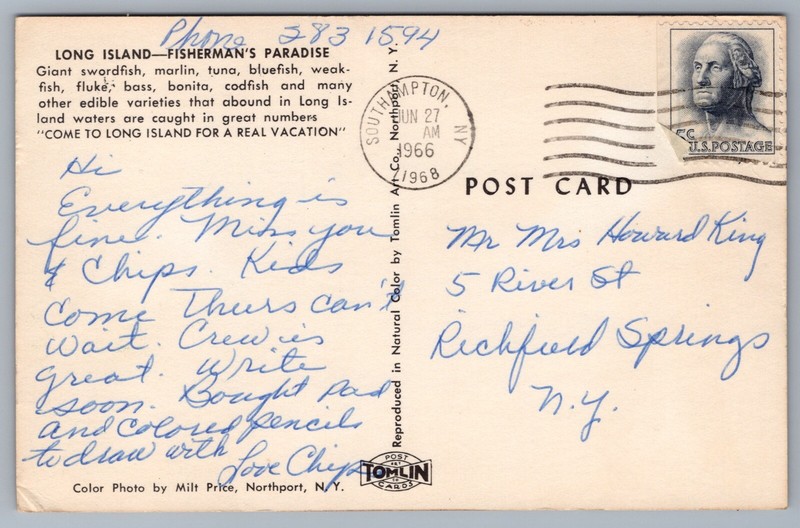 Phone 283 1594
LONG ISLAND—FISHERMAN'S PARADISE
Giant swordfish, marlin, tuna, bluefish, weak-
fish, fluke, bass, bonita, codfish and many
other edible varieties that abound in Long Is-
land waters are caught in great numbers
"COME TO LONG ISLAND FOR A REAL VACATION"
Hi
Everything is
fine. Miss you
& Chips. Kids
come Thurs can't
wait. Crew is
great. Write
soon. Bought Pad
and colored pencils
to draw with
Love Chip
Color Photo by Milt Price, Northport, N. Y.
Reproduced in Natural Color by Tomlin Art Co., Northport, N. Y.
POST
ART
TOMLIN
CARDS
SOUTHAMPTON, NY
JUN 27
AM
1966
11968
5c
U.S. POSTAGE
POST CARD
Mr Mrs Howard King
5 River St
Richfield Springs
N.Y.